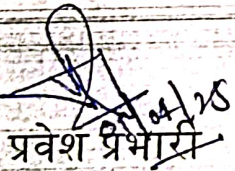 04/25
प्रवेश प्रभारी